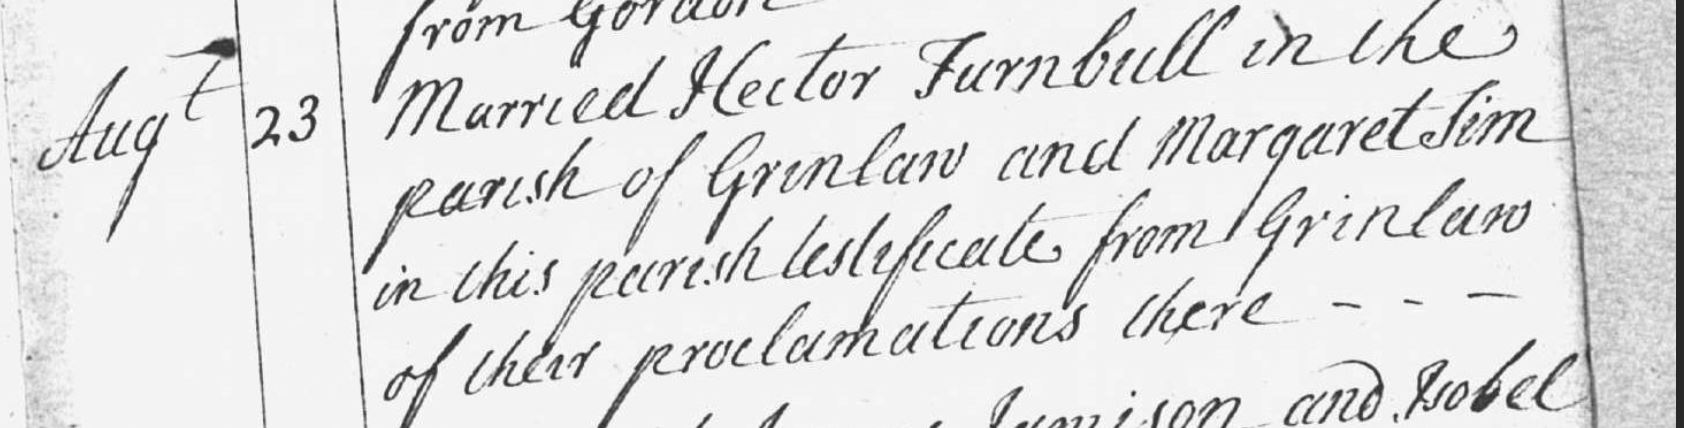 from Gordon
Augt 23 Married Hector Turnbull in the
parish of Grinlaw and Margaret Sim
in this parish testificate from Grinlaw
of their proclamations there - - -
Jamison and Isobel